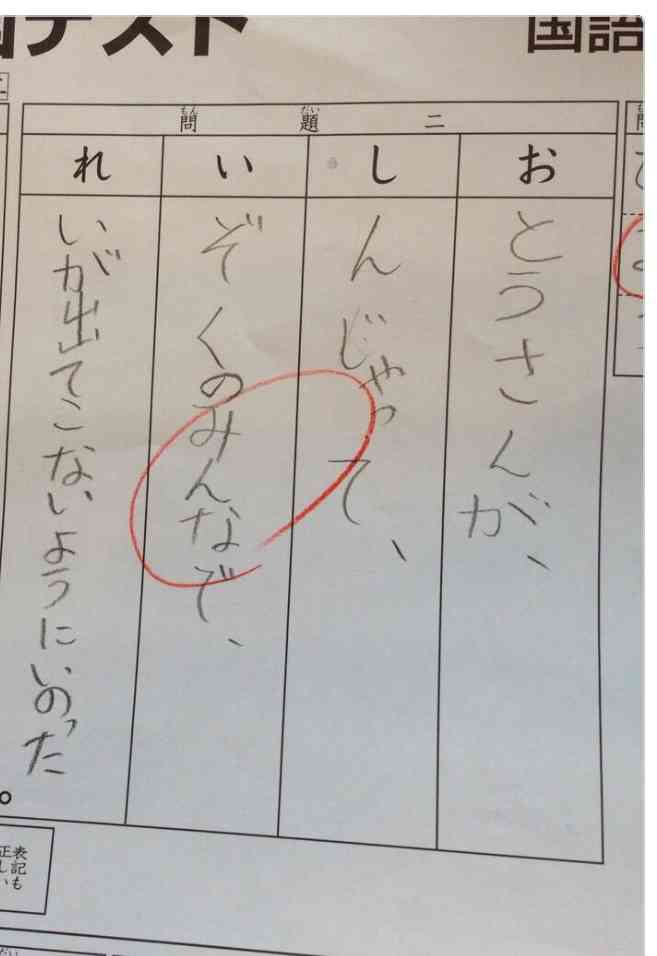 テスト
国語
問題二
おとうさんが、
しんじゃって、
いぞくのみんなで、
れいが出てこないようにいのった。
表記も
正しい